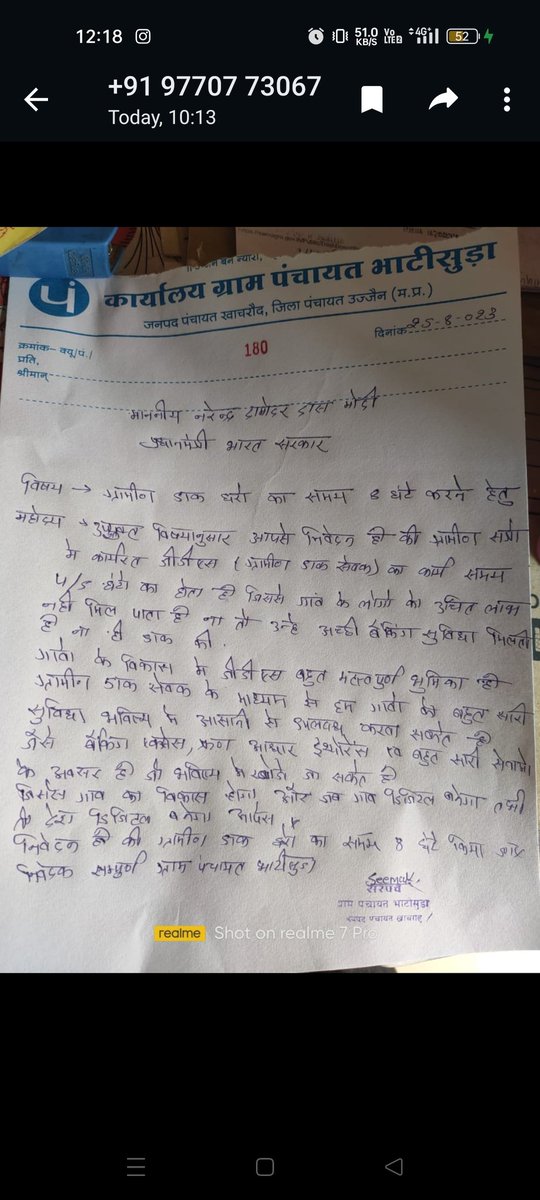 12:18
51.0 KB/S Vo LTE 2 4G+ 52
+91 97707 73067
Today, 10:13
पं
कार्यालय ग्राम पंचायत भाटीसुड़ा
जनपद पंचायत खाचरौद, जिला पंचायत उज्जैन (म.प्र.)
क्रमांक- क्यू/पं./
180
दिनांक 25-8-023
प्रति,
श्रीमान्
माननीय नरेन्द्र दामोदर दास मोदी
प्रधानमंत्री भारत सरकार
विषय → ग्रामीण डाक घरो का समय 8 घंटे करने हेतु
महोदय → उपयुक्त विषयानुसार आपसे निवेदन है की ग्रामीण
मे कार्यरत जीडीएस (ग्रामीण डाक सेवक) का कार्य समय
4/5 घंटो का होता है जिससे गांव के लोगो को उचित लाभ
नही मिल पाता है ना तो उन्हे अच्छी बैंकिंग सुविधा मिलती
है ना ही डाक की
गावो के विकास मे जीडीएस बहुत महत्वपूर्ण भुमिका
ग्रामीण डाक सेवक के माध्यम से हम गावो बहुत सारी
सुविधा भविष्य मे आसानी से उपलब्ध करवा सकेत है
जैसे बैंकिंग आधार बहुत सारी
के अवसर है जो भविष्य मे खोले जा सकेत है
गांव का विकास होगा और जब गांव डिजिटल बनेगा तभी
देश डिजिटल बनेगा आपसे
निवेदन है की ग्रामीण डाक घरो का समय 8 घंटे किया जाए
निवेदक सम्पुर्ण ग्राम पंचायत भाटीसुडा
Seemak
सरपंच
ग्राम पंचायत भाटीसुड़ा
जनपद पंचायत खाचरौद
realme Shot on realme 7 Pro